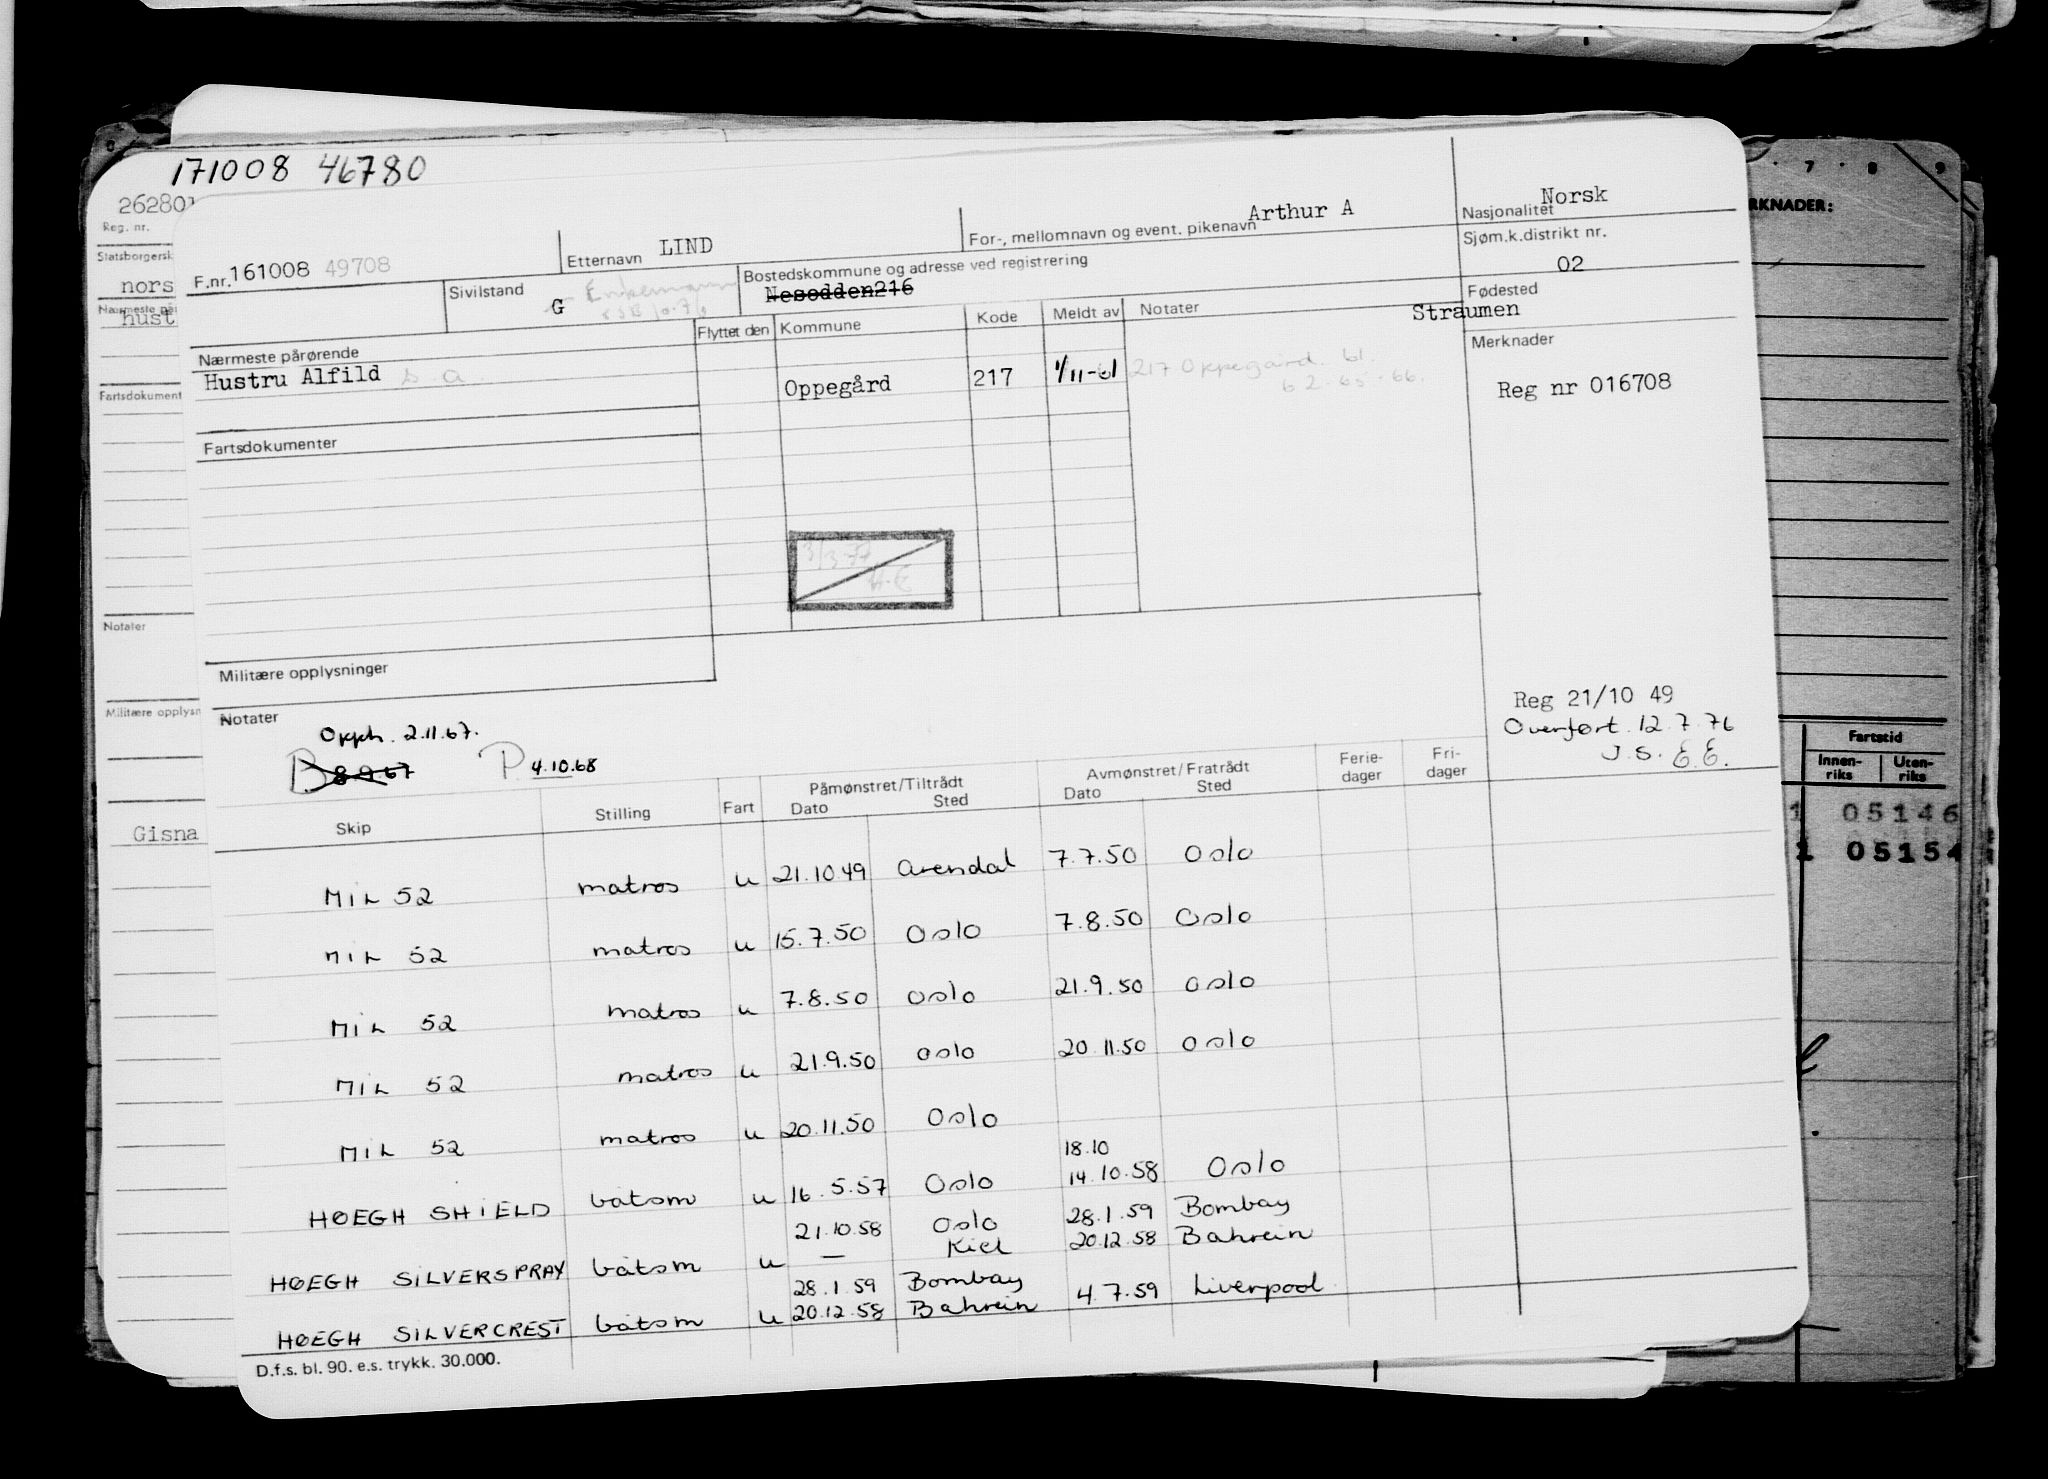 171008 46780
262801
Reg. nr.
Statsborgersk
nors
Nærmeste på
hust
Fartsdokument
Notater
Militære opplysn
Gisna
F.nr. 161008 49708
Etternavn LIND
For-, mellomnavn og event. pikenavn Arthur A
Nasjonalitet Norsk
Sjøm.k.distrikt nr.
02
Sivilstand G Enkemann
Bostedskommune og adresse ved registrering
Nesodden216
Fødested
Straumen
Nærmeste pårørende
Hustru Alfild s.a.
Flyttet den Kommune Kode Meldt av Notater
Oppegård 217 1/11-61 217 Oppegård. 61.
62-65-66.
Merknader
Reg nr 016708
Fartsdokumenter
3/3-77
H.E
Militære opplysninger
Notater
Opph. 2.11.67.
B 8 9.67 P 4.10.68
Reg 21/10 49
Overført. 12.7.76
J.S. E.E.
Skip Stilling Fart Påmønstret/Tiltrådt Dato Sted Avmønstret/Fratrådt Dato Sted Ferie-dager Fri-dager
MIL 52 matros u 21.10 49 Arendal 7.7.50 Oslo
MIL 52 matros u 15.7.50 Oslo 7.8.50 Oslo
MIL 52 matros u 7.8.50 Oslo 21.9.50 Oslo
MIL 52 matros u 21.9.50 Oslo 20.11.50 Oslo
MIL 52 matros u 20.11.50 Oslo
18.10
HØEGH SHIELD båtsm u 16.5.57 Oslo 14.10.58 Oslo
21.10.58 Oslo 28.1.59 Bombay
HØEGH SILVERSPRAY båtsm u — Kiel 20.12.58 Bahrein
28.1.59 Bombay
HØEGH SILVERCREST båtsm u 20.12.58 Bahrein 4.7.59 Liverpool
D.f.s. bl. 90. e.s. trykk. 30.000.
7 8 9
RKNADER:
Fartstid
Innen-riks Uten-riks
1 05146
1 05154